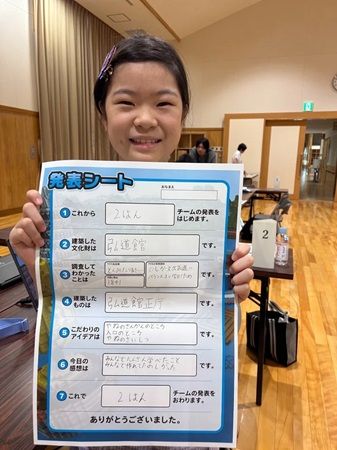 発表シート
おなまえ
1 これから 2はん チームの発表をはじめます。
2 建築した文化財は 弘道館 です。
3 調査してわかったことは です。
4 建築したものは 弘道館正庁 です。
5 こだわりのアイデアは
やねのさんかくのところ
入口のところ
やねのさいしつ
です。
6 今日の感想は
みんなでたくさん学べたこと
みんなで作れてたのしかった
です。
7 これで 2はん チームの発表をおわります。
ありがとうございました。
2